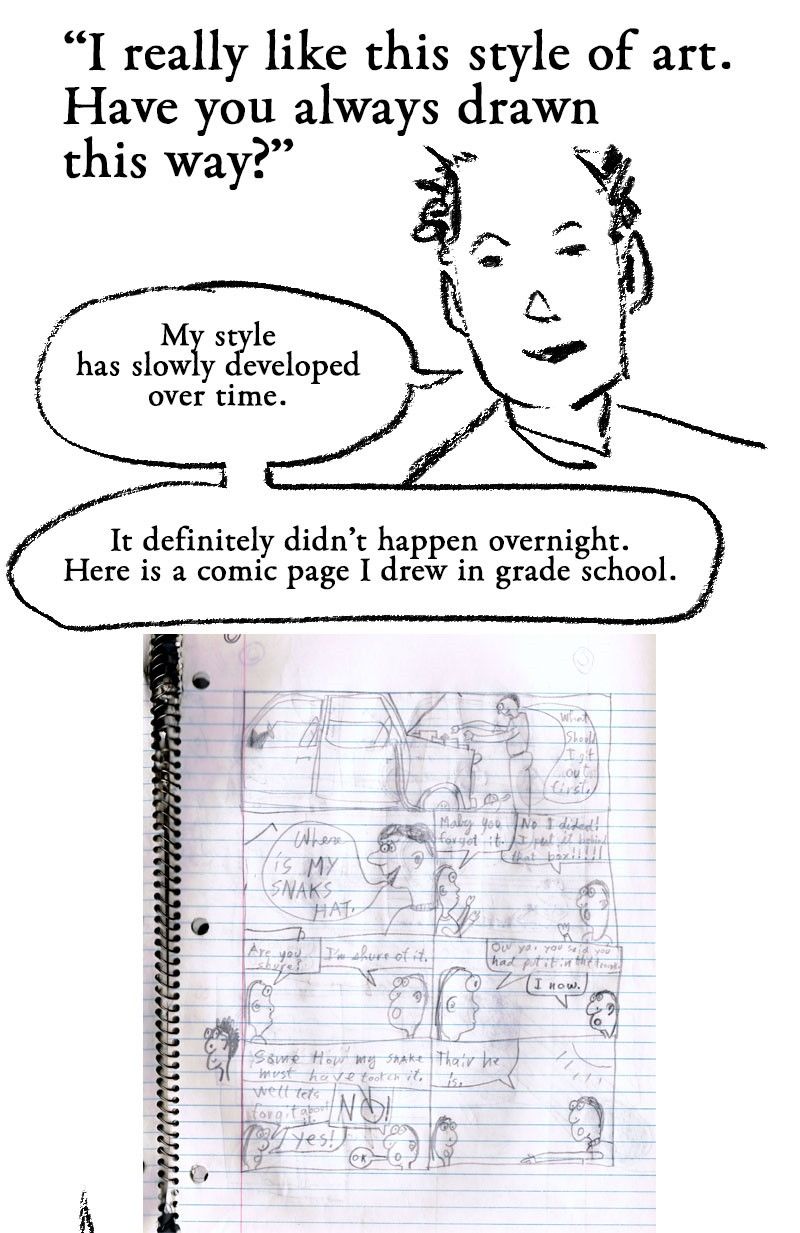 “I really like this style of art.
Have you always drawn
this way?”
My style
has slowly developed
over time.
It definitely didn’t happen overnight.
Here is a comic page I drew in grade school.
What
Should
I git
out
first.
Where
iS MY
SNAKS
HAT.
Maby you
forgot it.
No I dided!
I put it behind
that box!!!!!
Are you
shure?
I'm shure of it.
Ow ya, you said you
had put it in the trunk.
I now.
Some How my snake
must have tooken it.
Well lets
forgit about
it.
NO!
yes!
OK
Thair he
is.